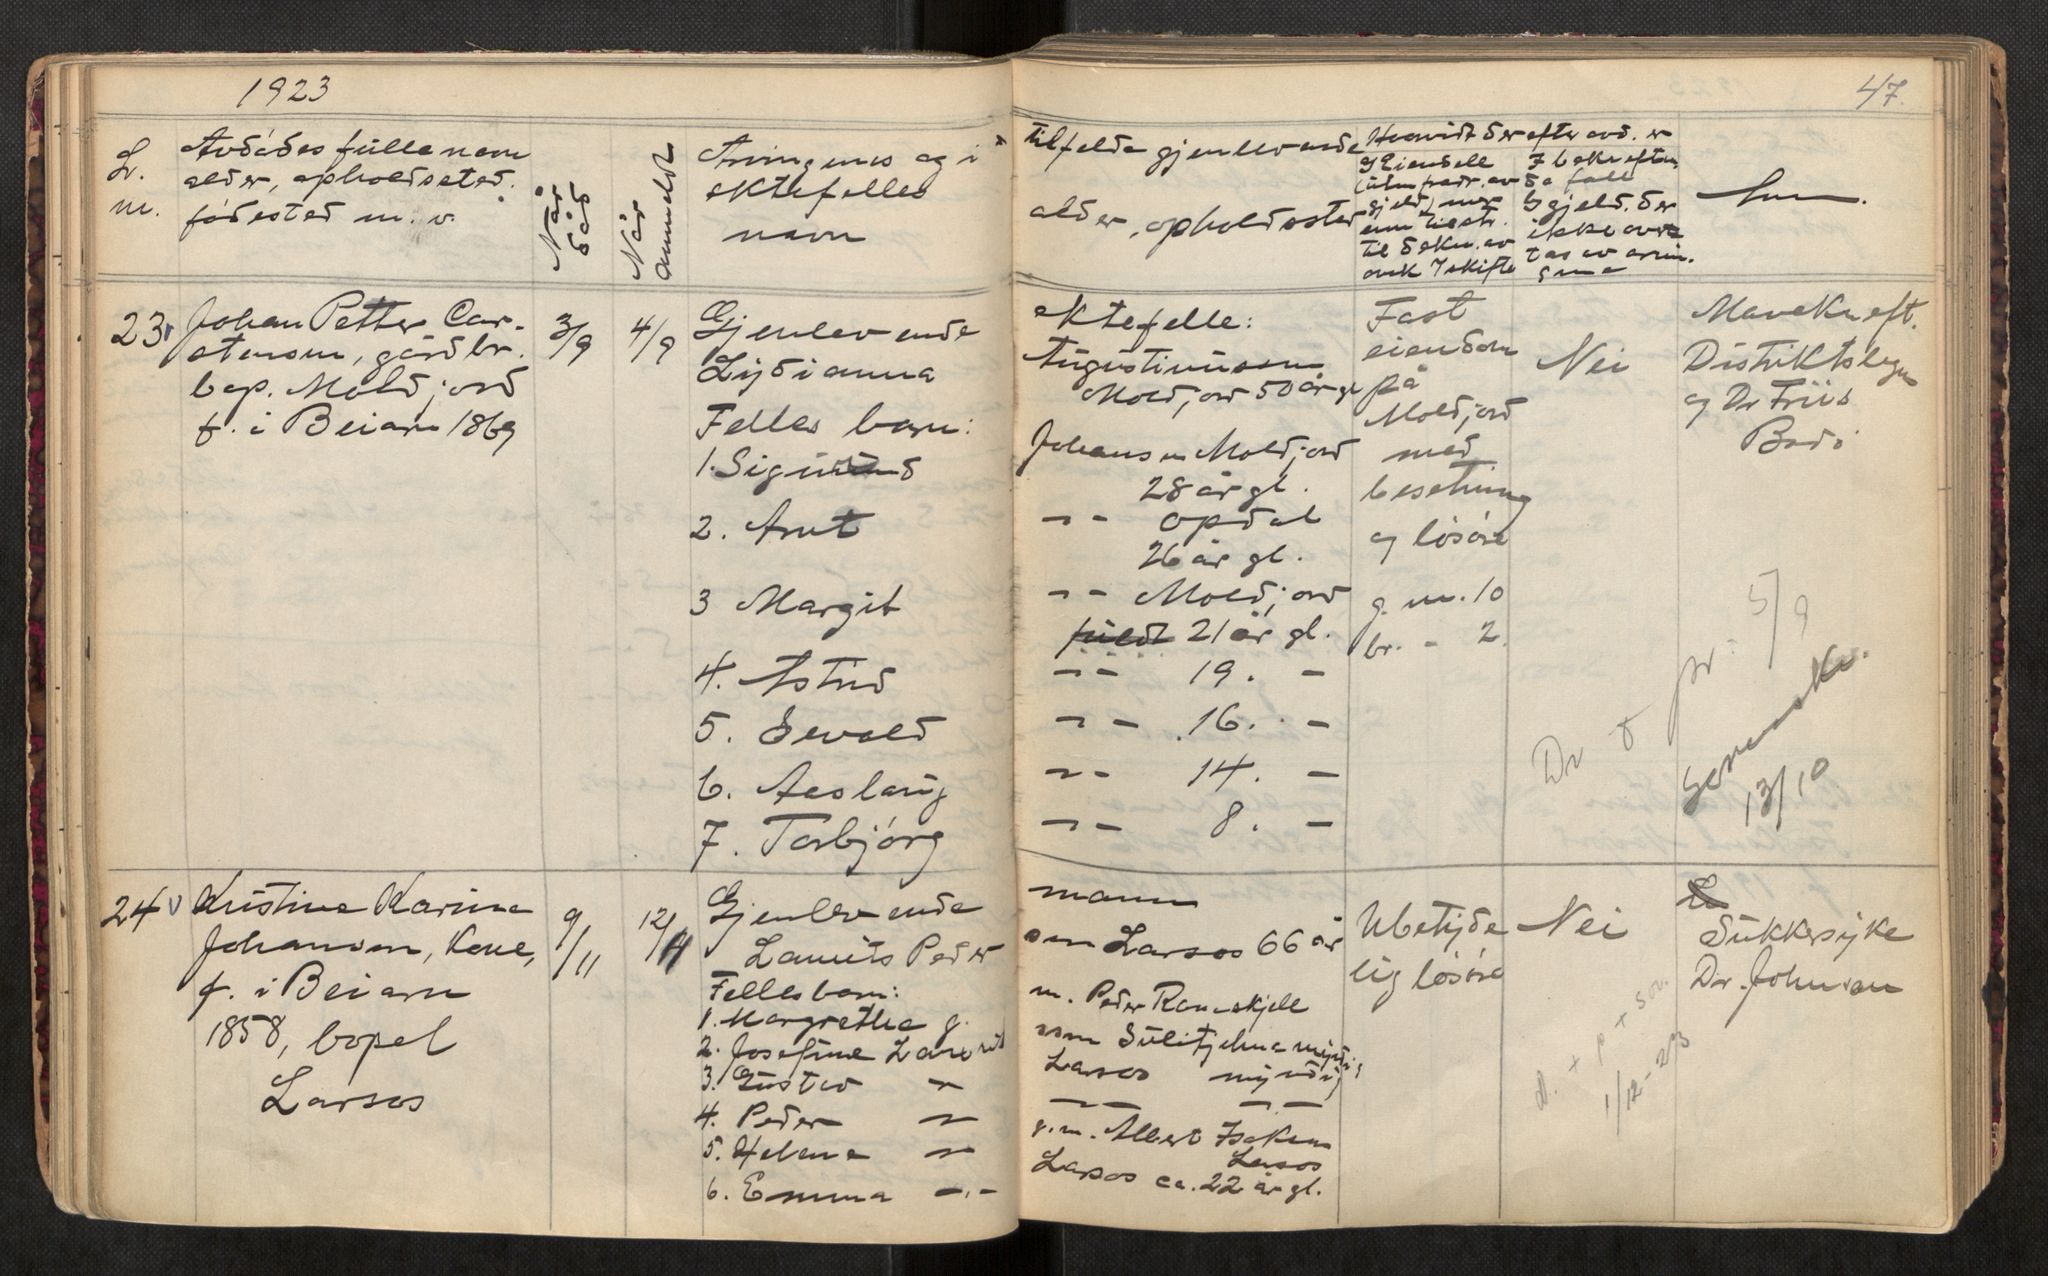 1923
47.
L.
nr.
Avdødes fulle navn
alder, opholdssted.
fødested m. v.
Når
død
Når
anmeldt
Arvingenes og i
ektefelles
navn
tilfelde gjenlevende
alder, opholdssted
Hvorvidt der efter avd. er
til dekn. av
ikke over
tas av arvin.
gene
23
Johan Petter Car-
stensen, gårdbr.
bop. Moldjord
f. i Beiarn 1869
3/9
4/9
Gjenlevende
Lydianna
Felles barn:
1. Sigmund
2. Arnt
3 Margit
4. Astrid
5. Sevald
6. Aaslaug
7. Torbjørg
ektefelle:
Augustinussen
Moldjord 50 år gl
Johansen Moldjord
28 år gl.
-"- Opdal
26 år gl.
-"- Moldjord
21 år gl.
-"- 19. -
-"- 16. -
-"- 14. -
-"- 8. -
Fast
eiendom
på
Moldjord
med
besetning
og løsøre
g. nr. 10
br. - 2
Nei
Mavekreft.
Distriktslegen
og Dr Friis
Bodø
5/9
13/10
24
Kristine Karine
Johansen, kone,
f. i Beiarn
1858, bopel
Larsos
9/11
12/11
Gjenlevende
Laurits Peder
Felles barn:
1. Margrethe g.
2. Josefine Laurits
3. Gustav -"-
4. Peder -"-
5. Helene -"-
6. Emma -"-
mann
sen Larsos 66 år
m. Peder Ramskjell
sen Sulitjelma myndig
Larsos myndig
-"- -"-
g. m. Albert Isaksen
Larsos
Larsos ca. 22 år gl.
Ubetyde
lig løsøre
Nei
Sukkersyke
Dr. Johnsen
d. + p + sor.
1/12-23